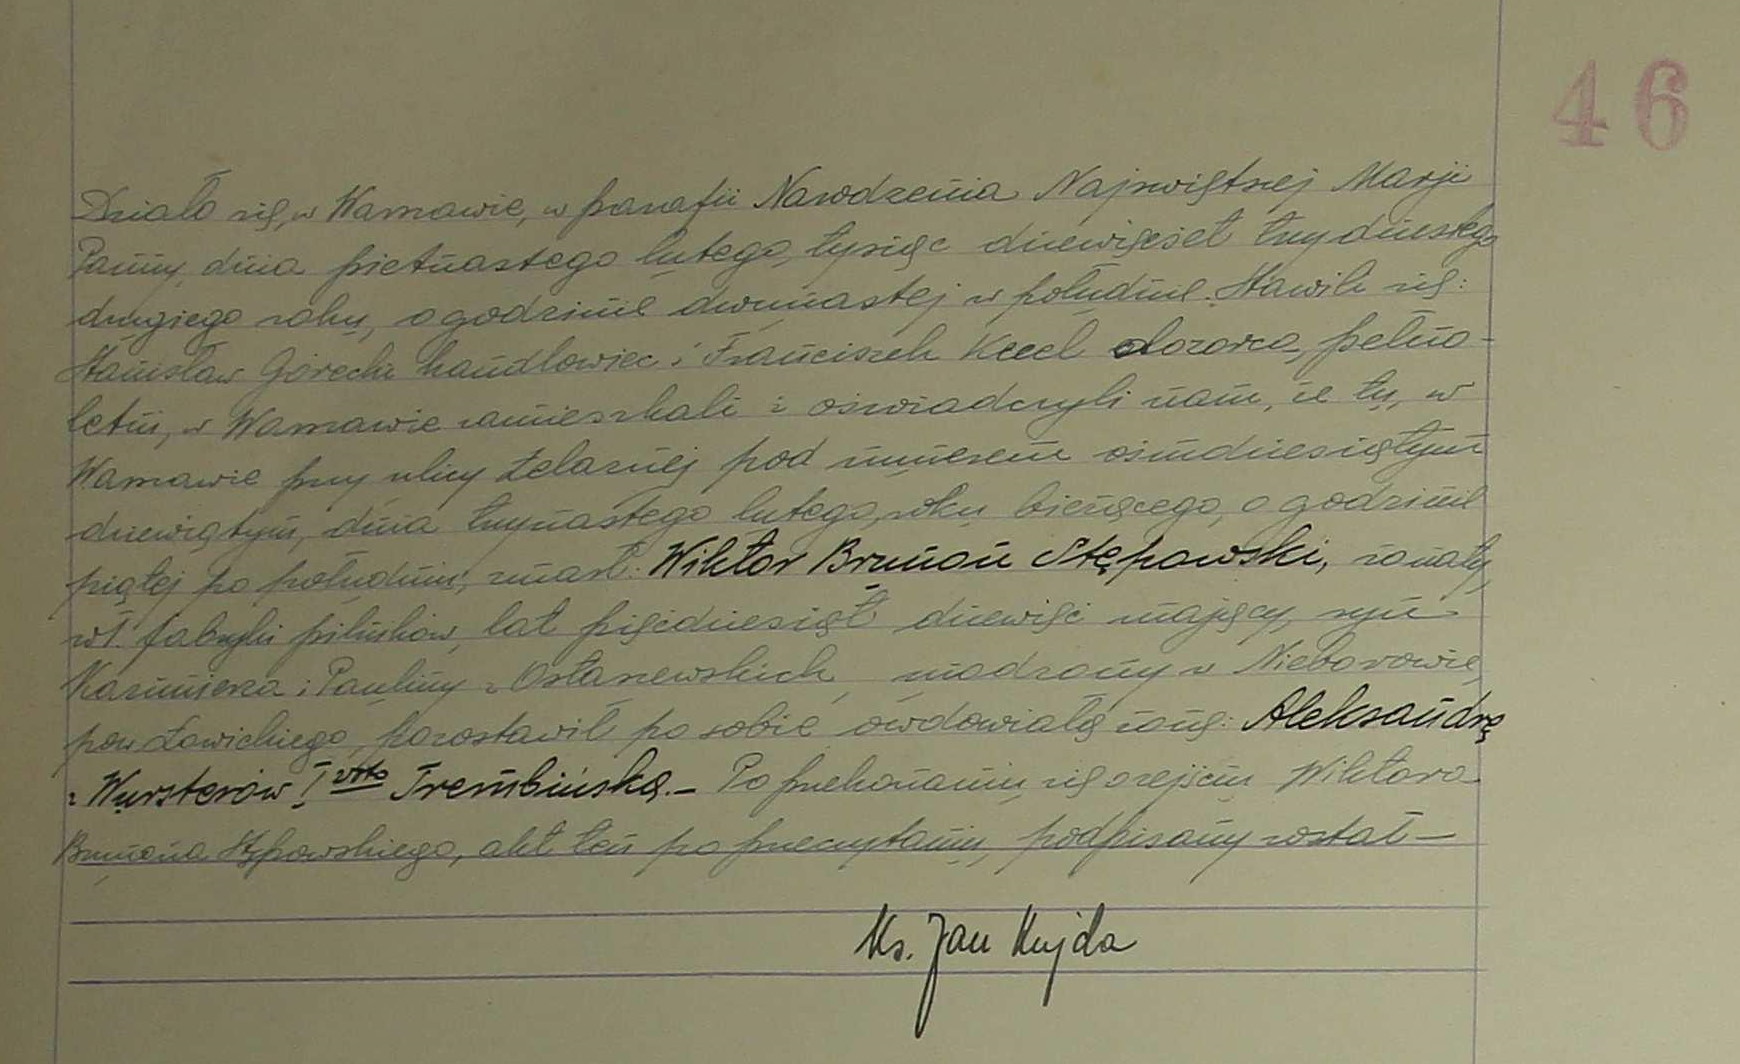 46
Działo się, w Warszawie, w parafii Narodzenia Najświętszej Marji
Panny, dnia piętnastego lutego, tysiąc dziewięćset trzydziestego
drugiego roku, o godzinie dwunastej w południe. Stawili się:
Stanisław Górecki handlowiec i Franciszek dozorca, pełno-
letni, w Warszawie zamieszkali i oświadczyli nam, że tu, w
Warszawie przy ulicy Żelaznej pod numerem ośmdziesiątym
dziewiątym, dnia trzynastego lutego, roku bieżącego, o godzinie
piątej po południu, zmarł: Wiktor Brunon Stępowski, żonaty,
wł. fabryki pilników, lat pięćdziesiąt dziewięć mający, syn
Kazimierza i Pauliny z Ostaszewskich, urodzony w Nieborowie
pow. Łowickiego, pozostawił po sobie owdowiałą żonę: Aleksandrę
z Wursterów I voto Trembińską.– Po przekonaniu się o zejściu Wiktora
Brunona Stępowskiego, akt ten po przeczytaniu, podpisany został –
Ks. Jan Kujda